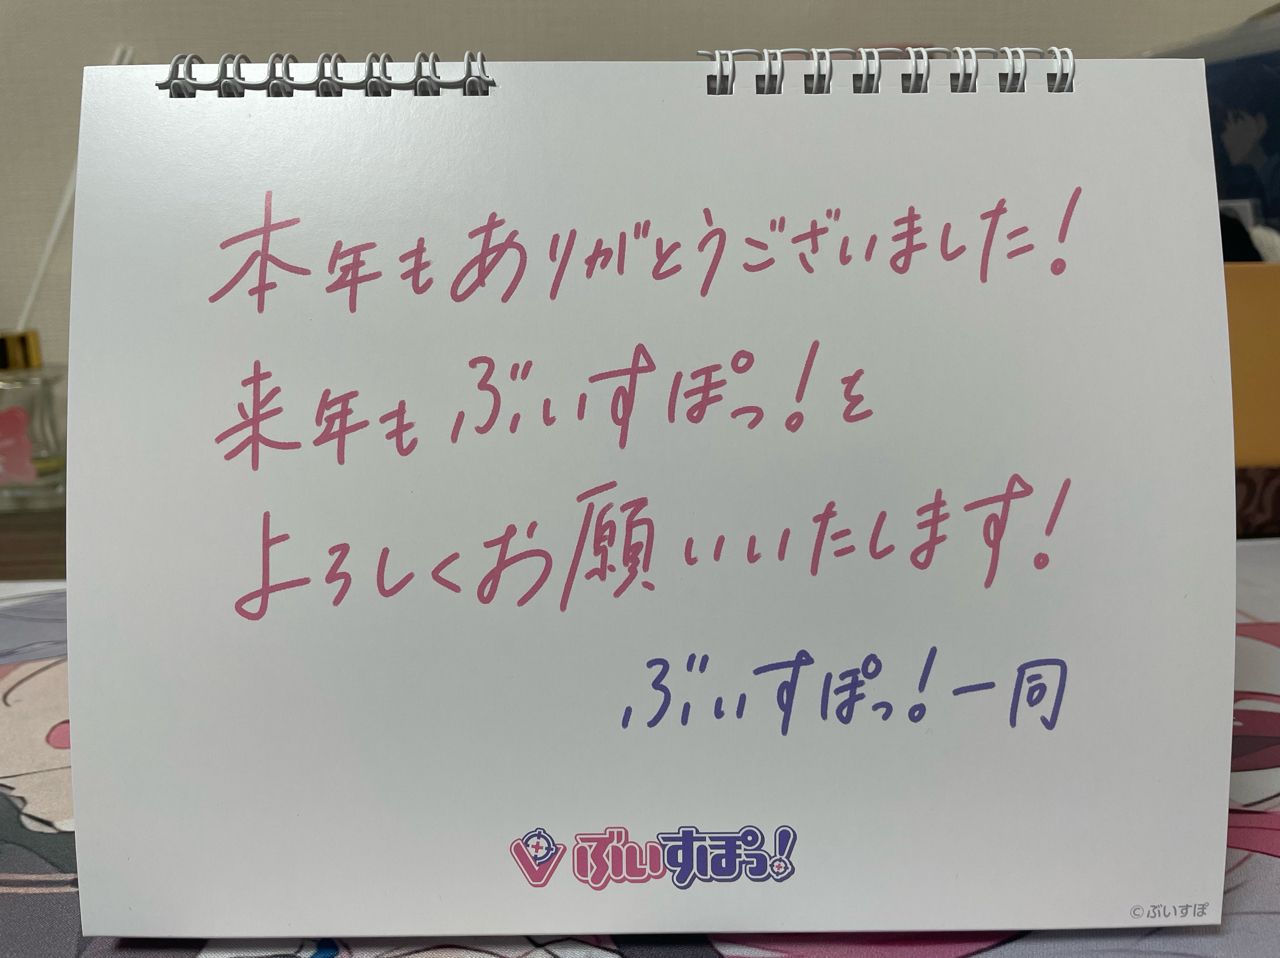 本年もありがとうございました!
来年もぶいすぽっ!を
よろしくお願いいたします!
ぶいすぽっ!一同
ぶいすぽっ!
©ぶいすぽ